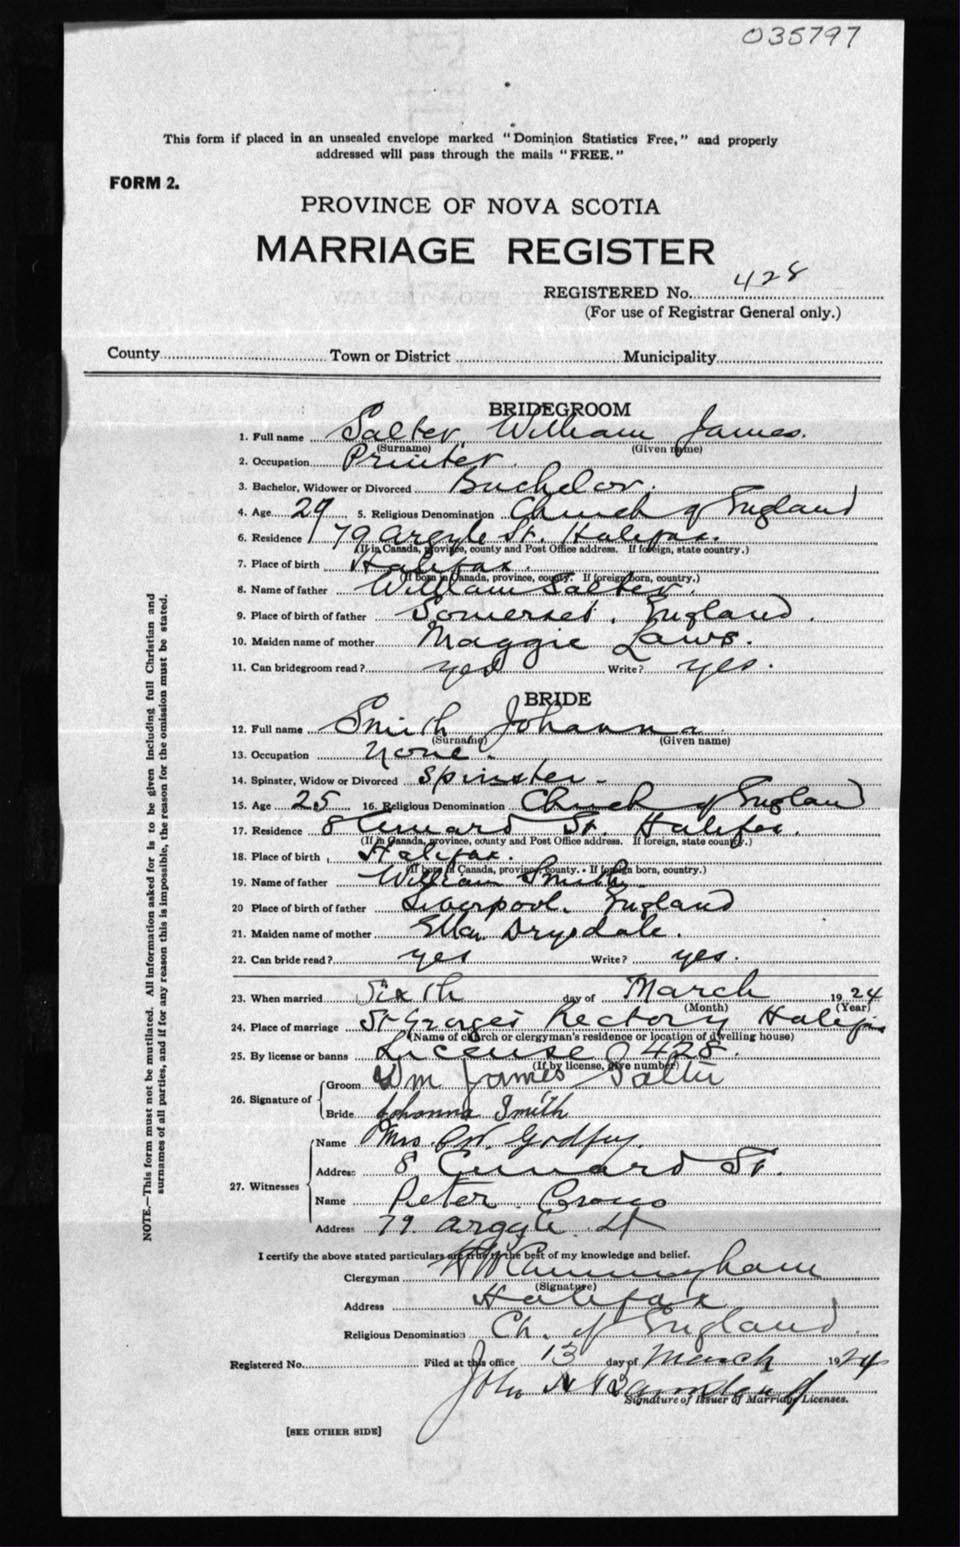 035797
This form if placed in an unsealed envelope marked "Dominion Statistics Free," and properly
addressed will pass through the mails "FREE."
FORM 2.
PROVINCE OF NOVA SCOTIA
MARRIAGE REGISTER
REGISTERED No. 428
(For use of Registrar General only.)
County Town or District Municipality
BRIDEGROOM
1. Full name Salter, William James.
(Surname) (Given name)
2. Occupation Printer.
3. Bachelor, Widower or Divorced Bachelor.
4. Age 29 5. Religious Denomination Church of England
6. Residence 79 Argyle St. Halifax.
(If in Canada, province, county and Post Office address. If foreign, state country.)
7. Place of birth Halifax.
(If born in Canada, province, county. If foreign born, country.)
8. Name of father William Salter.
9. Place of birth of father Somerset. England.
10. Maiden name of mother Maggie Laws.
11. Can bridegroom read? yes Write? yes.
BRIDE
12. Full name Smith Johanna
(Surname) (Given name)
13. Occupation None.
14. Spinster, Widow or Divorced Spinster-
15. Age 25 16. Religious Denomination Church of England
17. Residence 8 St. Halifax.
(If in Canada, province, county and Post Office address. If foreign, state country.)
18. Place of birth Halifax.
(If born in Canada, province, county. If foreign born, country.)
19. Name of father William Smith.
20 Place of birth of father Liverpool. England
21. Maiden name of mother Ella Drysdale.
22. Can bride read? yes Write? yes.
23. When married Sixth day of March 1924
(Month) (Year)
24. Place of marriage St Georges Rectory Halifax
(Name of church or clergyman's residence or location of dwelling house)
25. By license or banns License 428.
(If by license, give number)
26. Signature of
Groom Wm James Salter
Bride Johanna Smith
27. Witnesses
Name Mrs. Godfrey.
Address 8 St.
Name Peter
Address 79 Argyle St
I certify the above stated particulars are true to the best of my knowledge and belief.
Clergyman Cunningham
(Signature)
Address Halifax
Religious Denomination Ch. of England.
Registered No. Filed at this office 13 day of March 1924
John
Signature of Issuer of Marriage Licenses.
[SEE OTHER SIDE]
NOTE.—This form must not be mutilated. All information asked for is to be given including full Christian and
surnames of all parties, and if for any reason this is impossible, the reason for the omission must be stated.